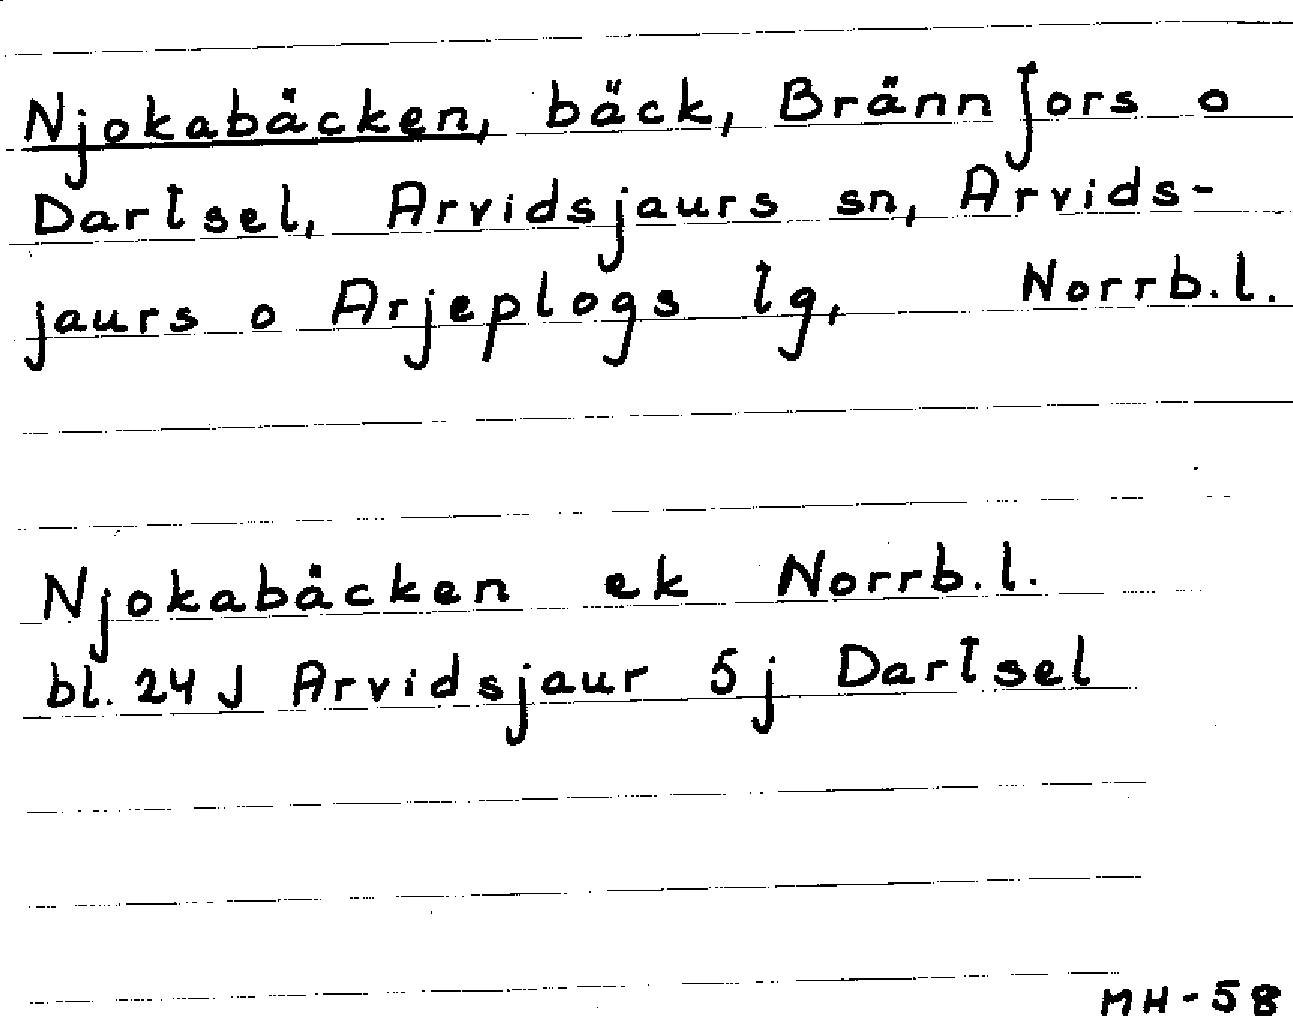 Njokabäcken, bäck, Brännfors o
Dartsel, Arvidsjaurs sn, Arvids-
jaurs o Arjeplogs lg, Norrb.l.
Njokabäcken ek Norrb.l.
bl. 24 J Arvidsjaur 5j Dartsel
MH-58